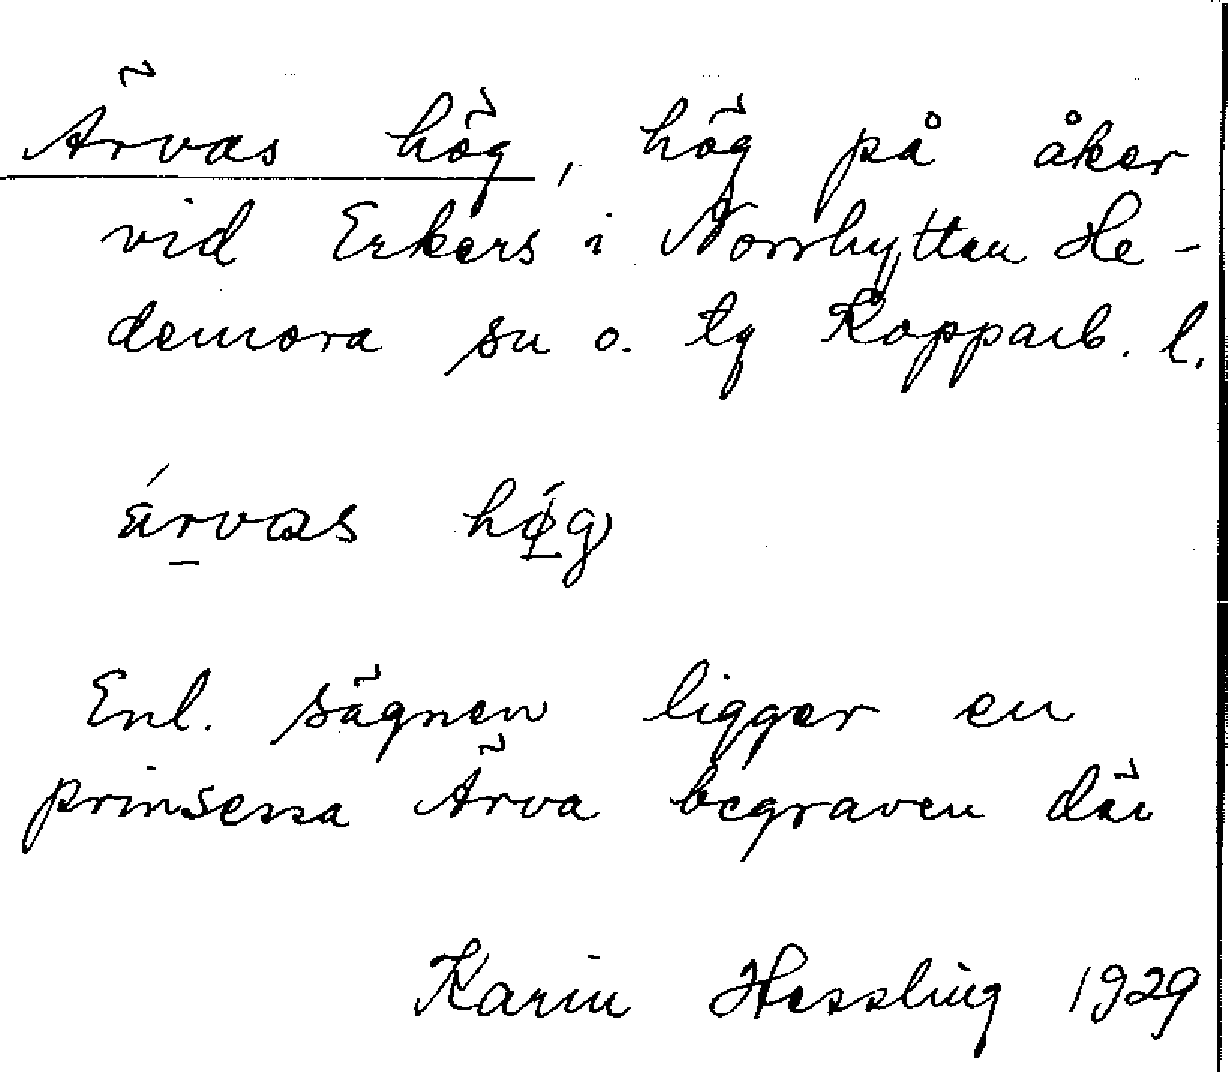 Ärvas hög, hög på åker
vid Erkers i Norrhyttan He-
demora sn o. tg Kopparb. l.
ärvas hög
Enl. sägnen ligger en
prinsessa Ärva begraven där
Karin Hessling 1929